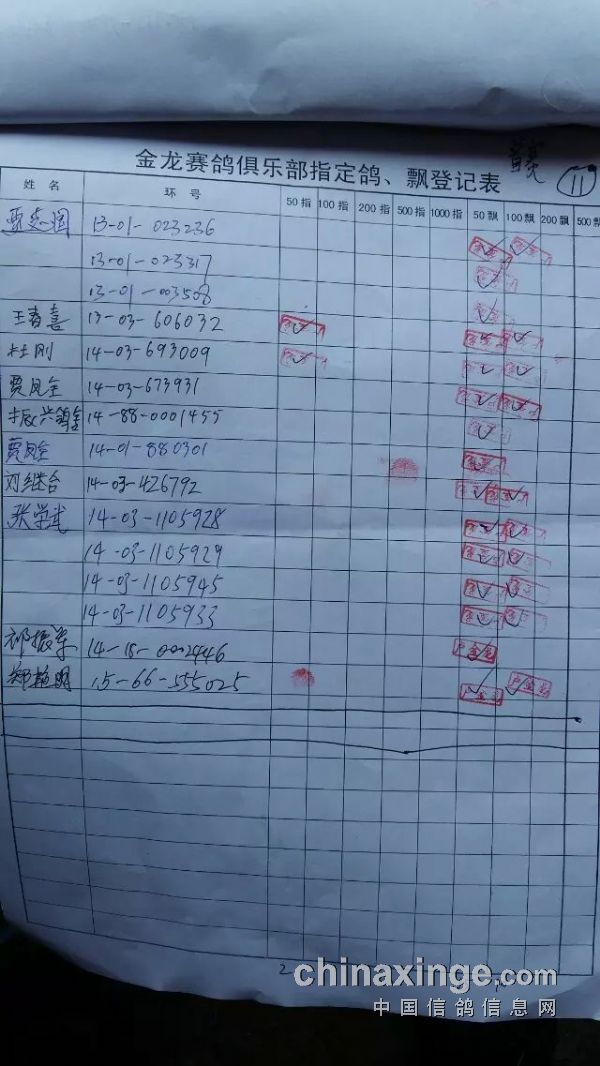 金龙赛鸽俱乐部指定鸽、飘登记表
11
姓 名 环 号 50 指 100 指 200 指 500 指 1000 指 50 飘 100 飘 200 飘 500 飘
13-01-023236
13-01-023317
13-01-003508
王春喜 13-03-606032
杜刚 14-03-693009
贾凤全 14-03-673931
14-88-0001455
贾凤全 14-01-880301
刘继合 14-03-426792
张学武 14-03-1105928
14-03-1105929
14-03-1105945
14-03-1105933
祁振军 14-18-0002446
15-66-555025
2
chinaxinge.com
中国信鸽信息网